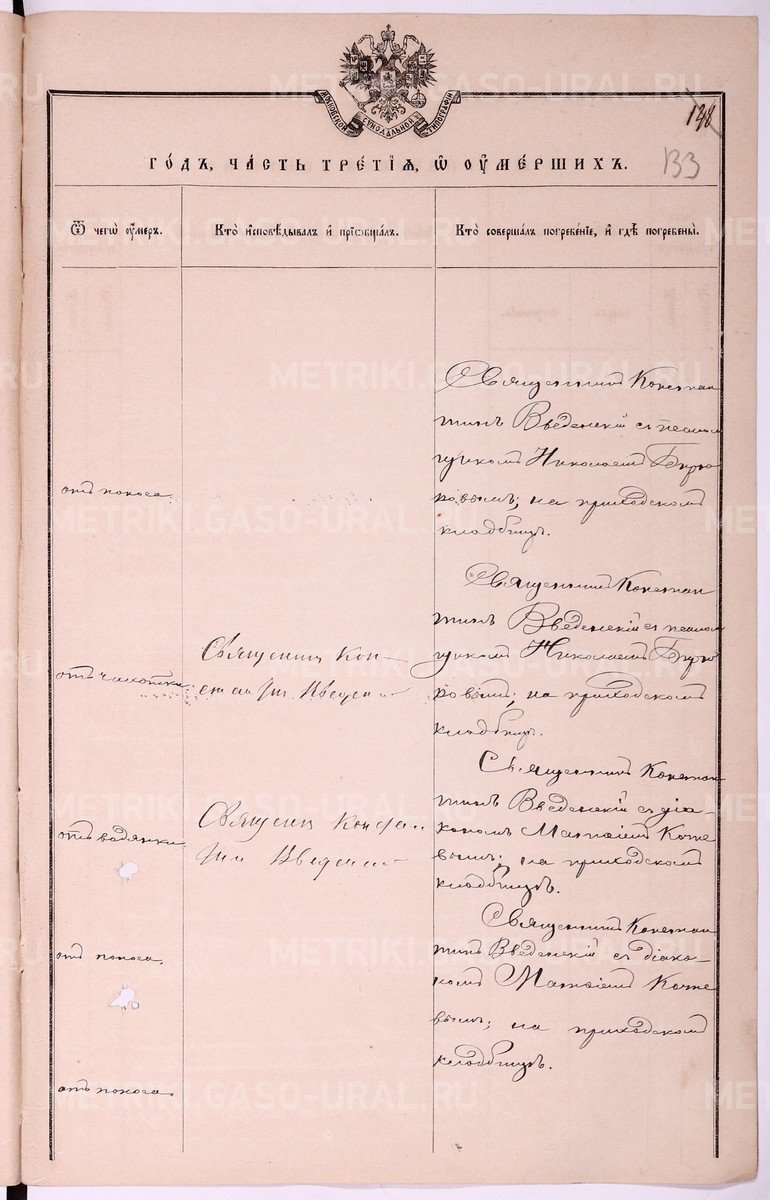 МОСКОВСКОЙ СѴНОДАЛЬНОЙ ТИПОГРАФІИ
138
133
ГО́ДЪ, ЧА́СТЬ ТРЕ́ТІѦ, Ѡ ОУМЕ́РШИХЪ.
Ѿ чегѡ̀ оу́меръ.
Кто̀ и҆сповѣ́дывалъ и҆ прїѡбща́лъ.
Кто̀ соверша́лъ погребе́нїе, и҆ гдѣ̀ погребены̀.
Священникъ Констан
тинъ Введенскій съ псалом
щикомъ Николаемъ
ровымъ; на приходскомъ
кладбищѣ.
отъ поноса
Священникъ Констан
тинъ Введенскій съ псалом
щикомъ Николаемъ
ровымъ; на приходскомъ
кладбищѣ.
отъ чахотки
Священникъ Кон-
стантин Введенс
Священникъ Констан
тинъ Введенскій съ діа-
кономъ Матвѣемъ Кочне
вымъ; на приходскомъ
кладбищѣ.
отъ водянки
Священник Констан
тин Введенс
Священникъ Констан
тинъ Введенскій съ діако-
номъ Матвѣемъ Кочне
вымъ; на приходскомъ
кладбищѣ.
отъ поноса.
отъ поноса.
METRIKI.GASO-URAL.RU